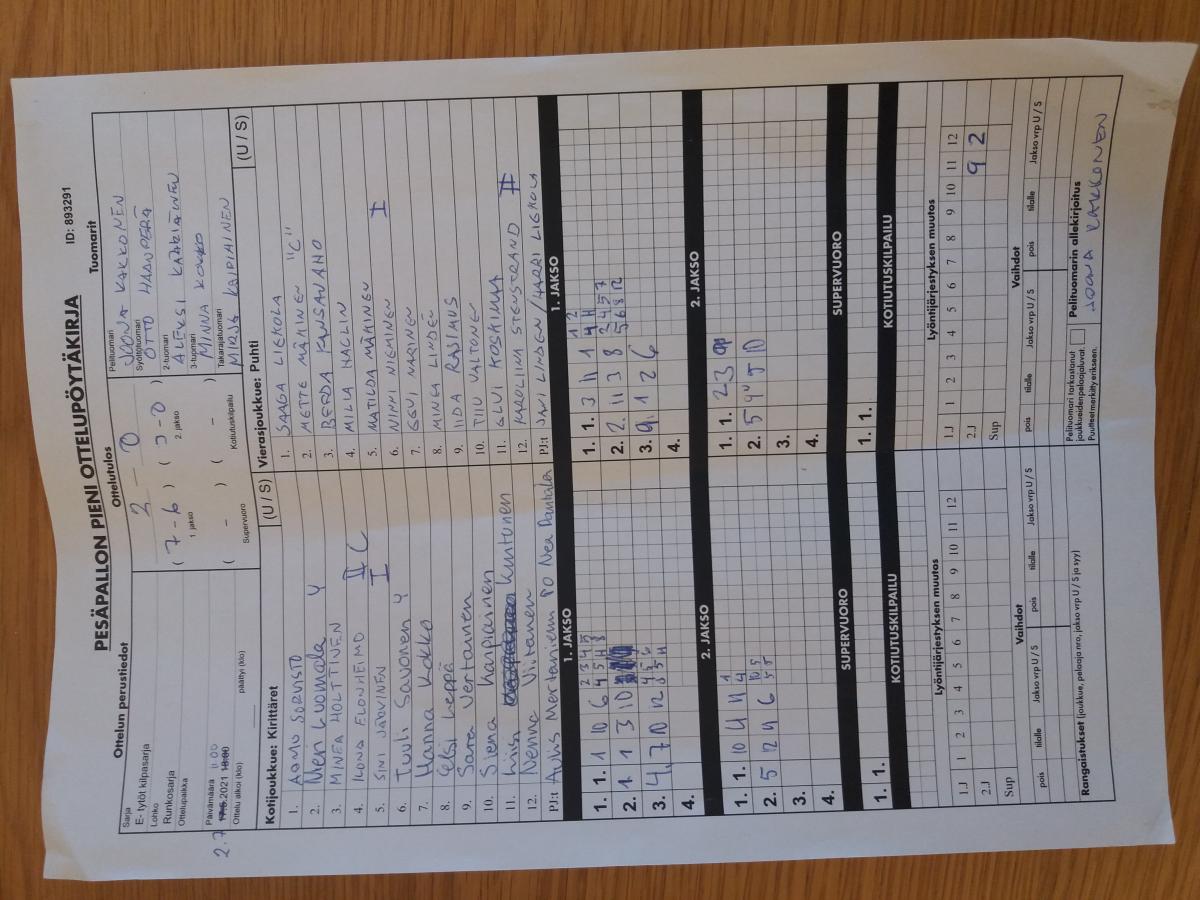 PESÄPALLON PIENI OTTELUPÖYTÄKIRJA ID: 893291
Ottelun perustiedot
Sarja
E- tytöt kilpasarja
Lohko
Runkosarja
Ottelupaikka
Päivämäärä 11.00
2.7 17.5.2021 18:00
Ottelu alkoi (klo) päättyi (klo)
Ottelutulos
2 - 0
( 7 - 6 ) ( 3 - 0 )
1. jakso 2. jakso
( - ) ( - )
Supervuoro Kotiutuskilpailu
Tuomarit
Pelituomari
JOONA KAKKONEN
Syöttötuomari
OTTO HAANPERÄ
2-tuomari
ALEKSI KÄÄRIÄINEN
3-tuomari
MINNA KOKKO
Takarajatuomari
MIRJA KAIPIAINEN
Kotijoukkue: Kirittäret (U / S)
1. AAMU SORVISTO
2. Meri Kuomala Y
3. MINEA HOLTTINEN
4. ILONA ELONHEIMO II C
5. SINI JÄRVINEN I
6. Tuuli Savonen Y
7. Hanna Kokko
8. Elsi Leppä
9. Sara Vertainen
10. Siena Kaipiainen
11. Liisa Kuntunen
12. Nenna Viitanen
PJ:t Aulis Mertaniemi PO Nea Rantala
Vierasjoukkue: Puhti (U / S)
1. SAAGA LIEKOLA
2. METTE MÄKINEN "C"
3. KANSANAHO
4. MILLA HACLIN
5. MATILDA MÄKINEN I
6. NINNI NIEMINEN
7. EEVI NARINEN
8. MINEA LINDÉN
9. IIDA RASIMUS
10. TIIU VALTONEN
11. ELVI KOSKINEN
12. KAROLIINA STENSTRAND II
PJ:t JANI LINDEN / HARRI LIEKOLA
1. JAKSO
1. 1. 1 10 6
2. 1 1 3 10
3. 4. 7 10 12
4.
1. JAKSO
1. 1. 3 11 1
2. 2. 11 3 8
3. 9. 1 2 6
4.
2. JAKSO
1. 1. 10 4 11
2. 5 12 11 6
3.
4.
2. JAKSO
1. 1. 2 3
2. 5
3.
4.
SUPERVUORO
1. 1.
SUPERVUORO
1. 1.
KOTIUTUSKILPAILU
KOTIUTUSKILPAILU
Lyöntijärjestyksen muutos
1.J 1 2 3 4 5 6 7 8 9 10 11 12
2.J
Sup
Lyöntijärjestyksen muutos
1.J 1 2 3 4 5 6 7 8 9 10 11 12
2.J 9 2
Sup
Vaihdot
pois tilalle Jakso vrp U / S pois tilalle Jakso vrp U / S
Vaihdot
pois tilalle Jakso vrp U / S pois tilalle Jakso vrp U / S
Rangaistukset (joukkue, pelaaja nro, jakso vrp U / S ja syy)
Pelituomari tarkastanut
joukkueidenpelaajaluvat.
Puutteetmerkittyerikseen.
Pelituomarin allekirjoitus
JOONA KAKKONEN